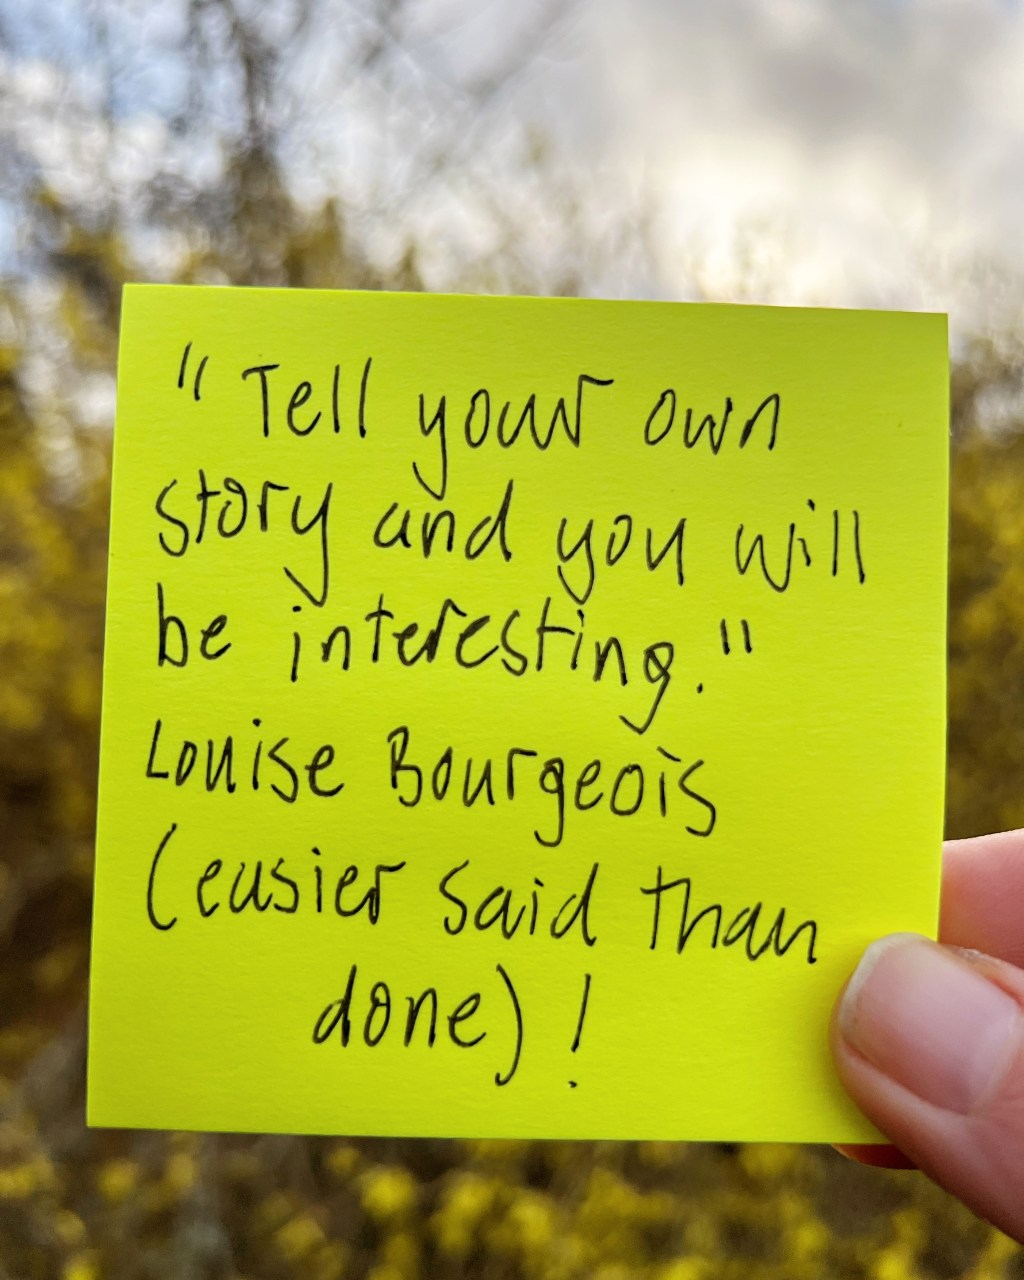 "Tell your own
story and you will
be interesting."
Louise Bourgeois
(easier said than
done)!